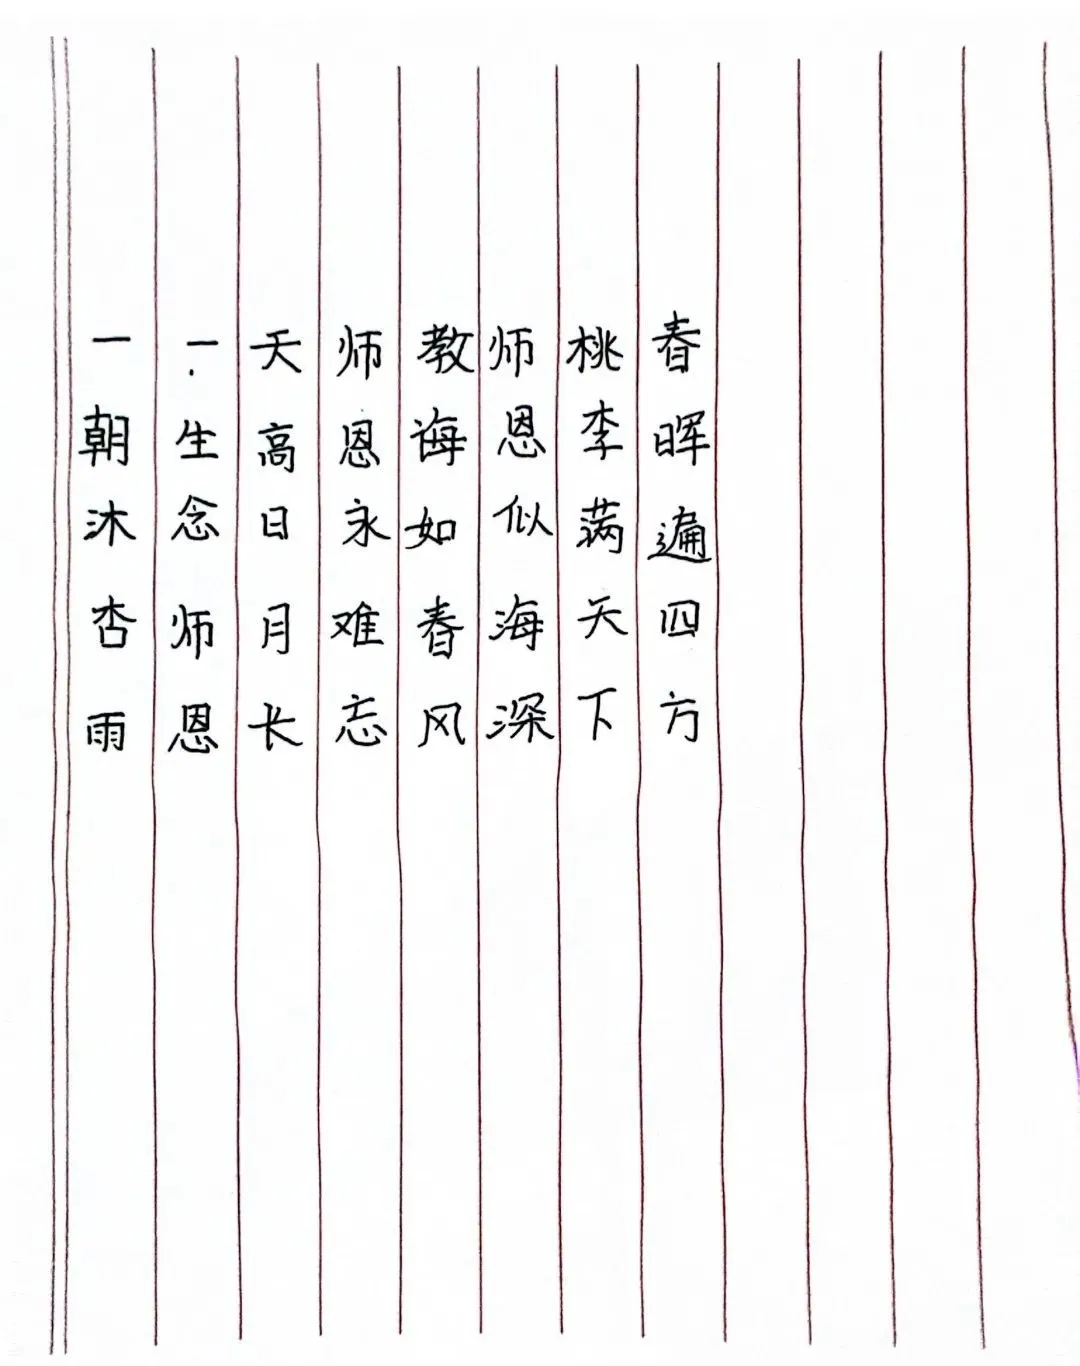 一朝沐杏雨
一生念师恩
天高日月长
师恩永难忘
教诲如春风
师恩似海深
桃李满天下
春晖遍四方